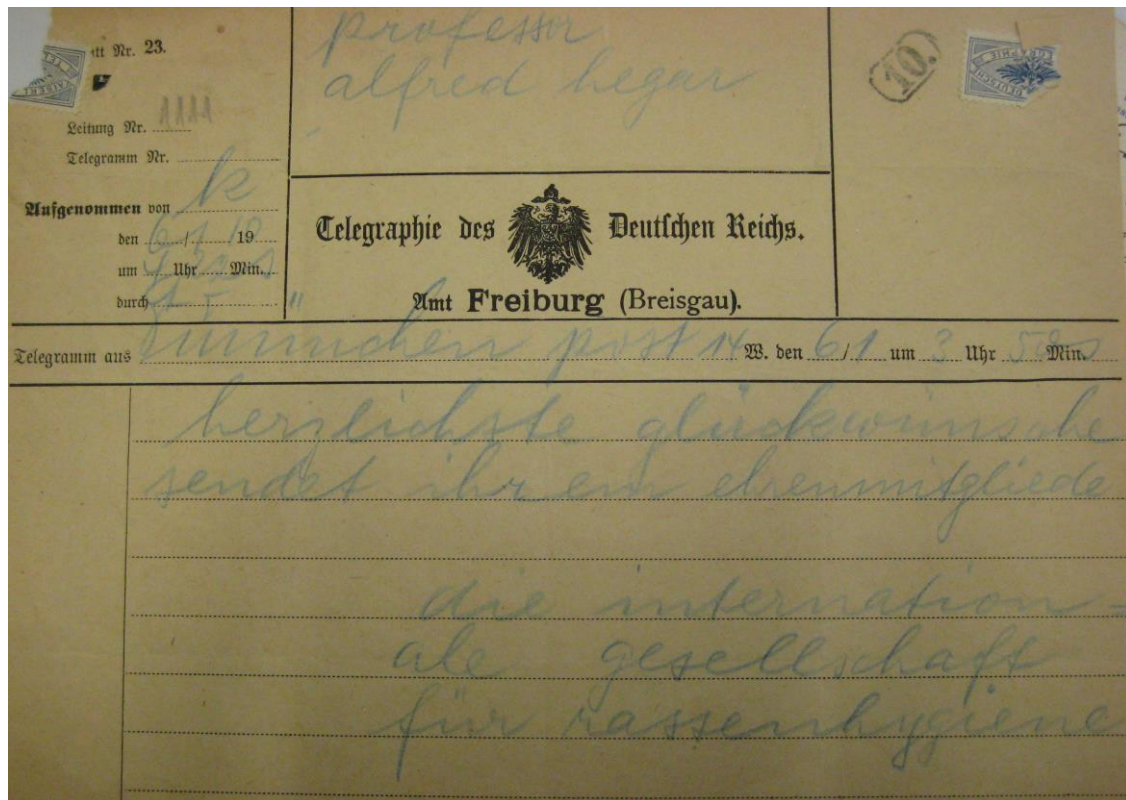 professor
alfred hegar
tt Nr. 23.
1111
10.
Leitung Nr.
Telegramm Nr.
Aufgenommen von k
den 6/1 19 10
um Uhr Min.
durch
Telegraphie des Deutschen Reichs.
Amt Freiburg (Breisgau).
Telegramm aus münchen post 14 W. den 6/1 um 3 Uhr 50 Min.
herzlichste glückwünsche
sendet ihrem ehrenmitgliede
die internation=
ale gesellschaft
für rassenhygiene